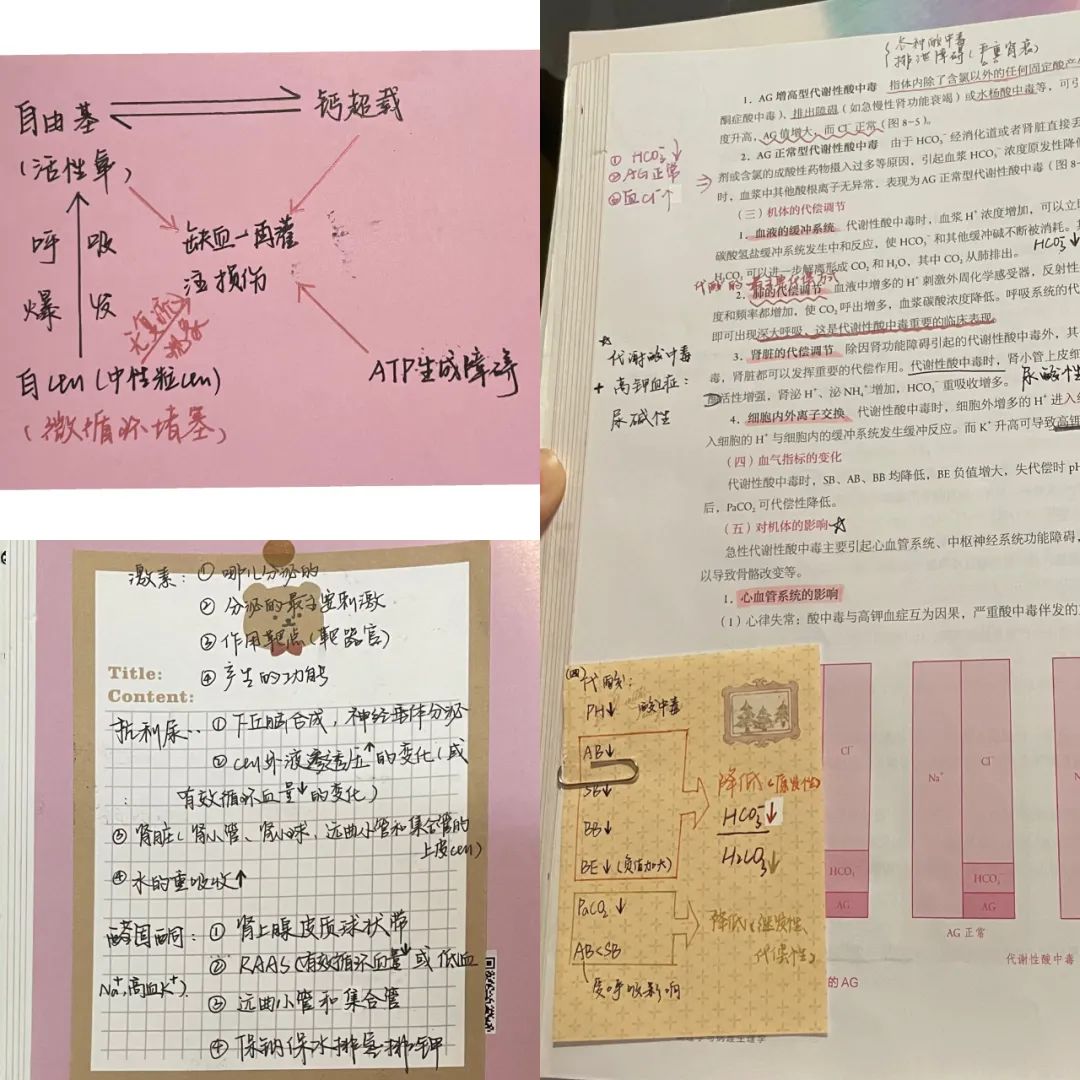 自由基
钙超载
(活性氧)
呼吸
爆发
缺血-再灌
注损伤
无复流
现象
白cell(中性粒cell)
ATP生成障碍
(微循环堵塞)
激素: ① 哪儿分泌的
② 分泌的最主要刺激
③ 作用靶点(靶器官)
④ 产生的功能
Title:
Content:
抗利尿: ① 下丘脑合成,神经垂体分泌
② cell外液渗透压↑的变化(或
有效循环血量↓的变化)
③ 肾脏(肾小管、肾小球,远曲小管和集合管的
上皮cell)
④ 水的重吸收↑
醛固酮: ① 肾上腺皮质球状带
② RAAS(有效循环血量↓或低血
Na⁺,高血K⁺)
③ 远曲小管和集合管
④ 保钠保水排氢排钾
各种酸中毒
排泄障碍(严重肾衰)
1. AG 增高型代谢性酸中毒 指体内除了含氯以外的任何固定酸产
酮症酸中毒)、排出障碍(如急慢性肾功能衰竭)或水杨酸中毒等,可引
度升高,AG 值增大,而 Cl⁻ 正常(图 8-5)。
① HCO₃⁻↓
② AG正常
③ 血Cl⁻↑
2. AG 正常型代谢性酸中毒 由于 HCO₃⁻ 经消化道或者肾脏直接丢
剂或含氯的成酸性药物摄入过多等原因,引起血浆 HCO₃⁻ 浓度原发性降低
时,血浆中其他酸根离子无异常,表现为 AG 正常型代谢性酸中毒(图 8-
(三)机体的代偿调节
1. 血液的缓冲系统 代谢性酸中毒时,血浆 H⁺ 浓度增加,可以立即
碳酸氢盐缓冲系统发生中和反应,使 HCO₃⁻ 和其他缓冲碱不断被消耗。
HCO₃⁻↓
H₂CO₃ 可以进一步解离形成 CO₂ 和 H₂O,其中 CO₂ 从肺排出。
代酸的最主要代偿方式
2. 肺的代偿调节 血液中增多的 H⁺ 刺激外周化学感受器,反射性
度和频率都增加,使 CO₂ 呼出增多,血浆碳酸浓度降低。呼吸系统的代
即可出现深大呼吸,这是代谢性酸中毒重要的临床表现。
代谢酸中毒
+ 高钾血症:
尿碱性
3. 肾脏的代偿调节 除因肾功能障碍引起的代谢性酸中毒外,其
毒,肾脏都可以发挥重要的代偿作用。代谢性酸中毒时,肾小管上皮细
活性增强,肾泌 H⁺、泌 NH₄⁺ 增加,HCO₃⁻ 重吸收增多。
尿酸性
4. 细胞内外离子交换 代谢性酸中毒时,细胞外增多的 H⁺ 进入
入细胞的 H⁺ 与细胞内的缓冲系统发生缓冲反应。而 K⁺ 升高可导致高钾
(四)血气指标的变化
代谢性酸中毒时,SB、AB、BB 均降低,BE 负值增大,失代偿时 pH
后,PaCO₂ 可代偿性降低。
(五)对机体的影响
急性代谢性酸中毒主要引起心血管系统、中枢神经系统功能障碍,
以导致骨骼改变等。
1. 心血管系统的影响
(1)心律失常:酸中毒与高钾血症互为因果,严重酸中毒伴发的
(四)代酸:
PH↓ 酸中毒
AB↓
SB↓
BB↓
BE↓(负值加大)
降低(原发性)
HCO₃⁻↓
H₂CO₃↓
PaCO₂↓
AB<SB
降低(继发性、
代偿性)
受呼吸影响
Cl⁻
HCO₃⁻
AG
Na⁺
Cl⁻
HCO₃⁻
AG
AG 正常
代谢性酸中毒
的 AG